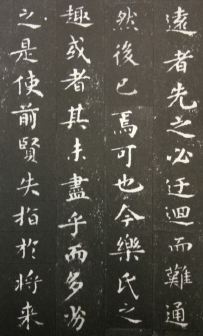 遠者先之必迂迴而難通
然後已焉可也今樂氏之
趣或者其未盡乎而多劣
之是使前賢失指於将來